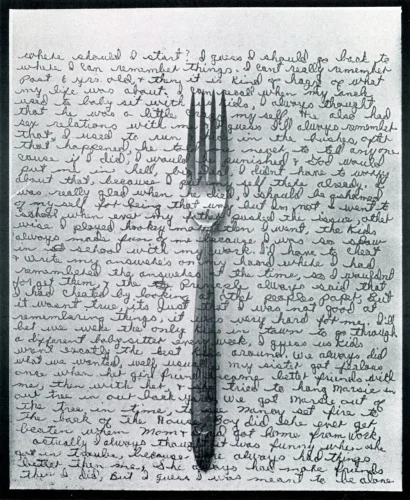 where should I start? I guess I should go back to
where I can remember things. I cant really remember
past 6 yrs. old & then it is kind of hazy of what
my life was about. I can recall when my uncle
used to baby set with kids, I always thought
that he was a little my self. He also had
sex relations with me I guess I'll always remember
that, I used to run in the bushes, after
that happened, he to never to tell anyone
cause if I did, I would be punished & God would
put hell, but I didnt have to worry
about that, because I felt there already. I
was really glad when he I should be ashamed
of my self for being that way, but Im not. I went to
school when ever my father pushed the issue, other
wise I played hookey most of the time, the kids
always made fun of me because I was so slow
in school with my work. I'd have to cheat
& write my answere's on my hand while I had
remembered the answeres at the time, so I wouldnt
forget them, & the Princeple always said that
I had cheated by looking at other peoples paper, But
it wasnt true, its just that I was not good at
remembering things, it was very hard for me. I'll
bet we were the only kids in town to go through
a different baby sitter every week, I guess us kids
werent exactly the best kids around. We always did
what we wanted, well, my sister got jealous
once when her girl friend better friends with
me, then with her, & tried to hang Marsie in
out tree out back yard. We got Marsie out of
the tree in time, Nancy set fire to
the back of the House, Boy did she ever get
beaten when Mom & Dad got home from work
actually I always thought it was funny when she
got in trouble because always had things
better then me, she always had more friends
then I did, But I guess I was meant to be alone